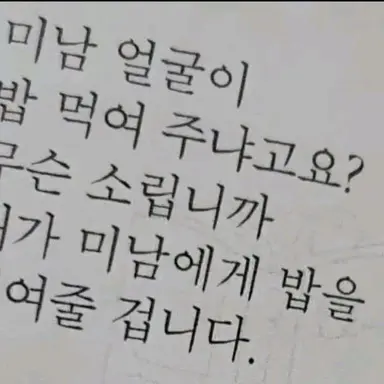 미남 얼굴이
밥 먹여 주냐고요?
무슨 소립니까
내가 미남에게 밥을
여줄 겁니다.